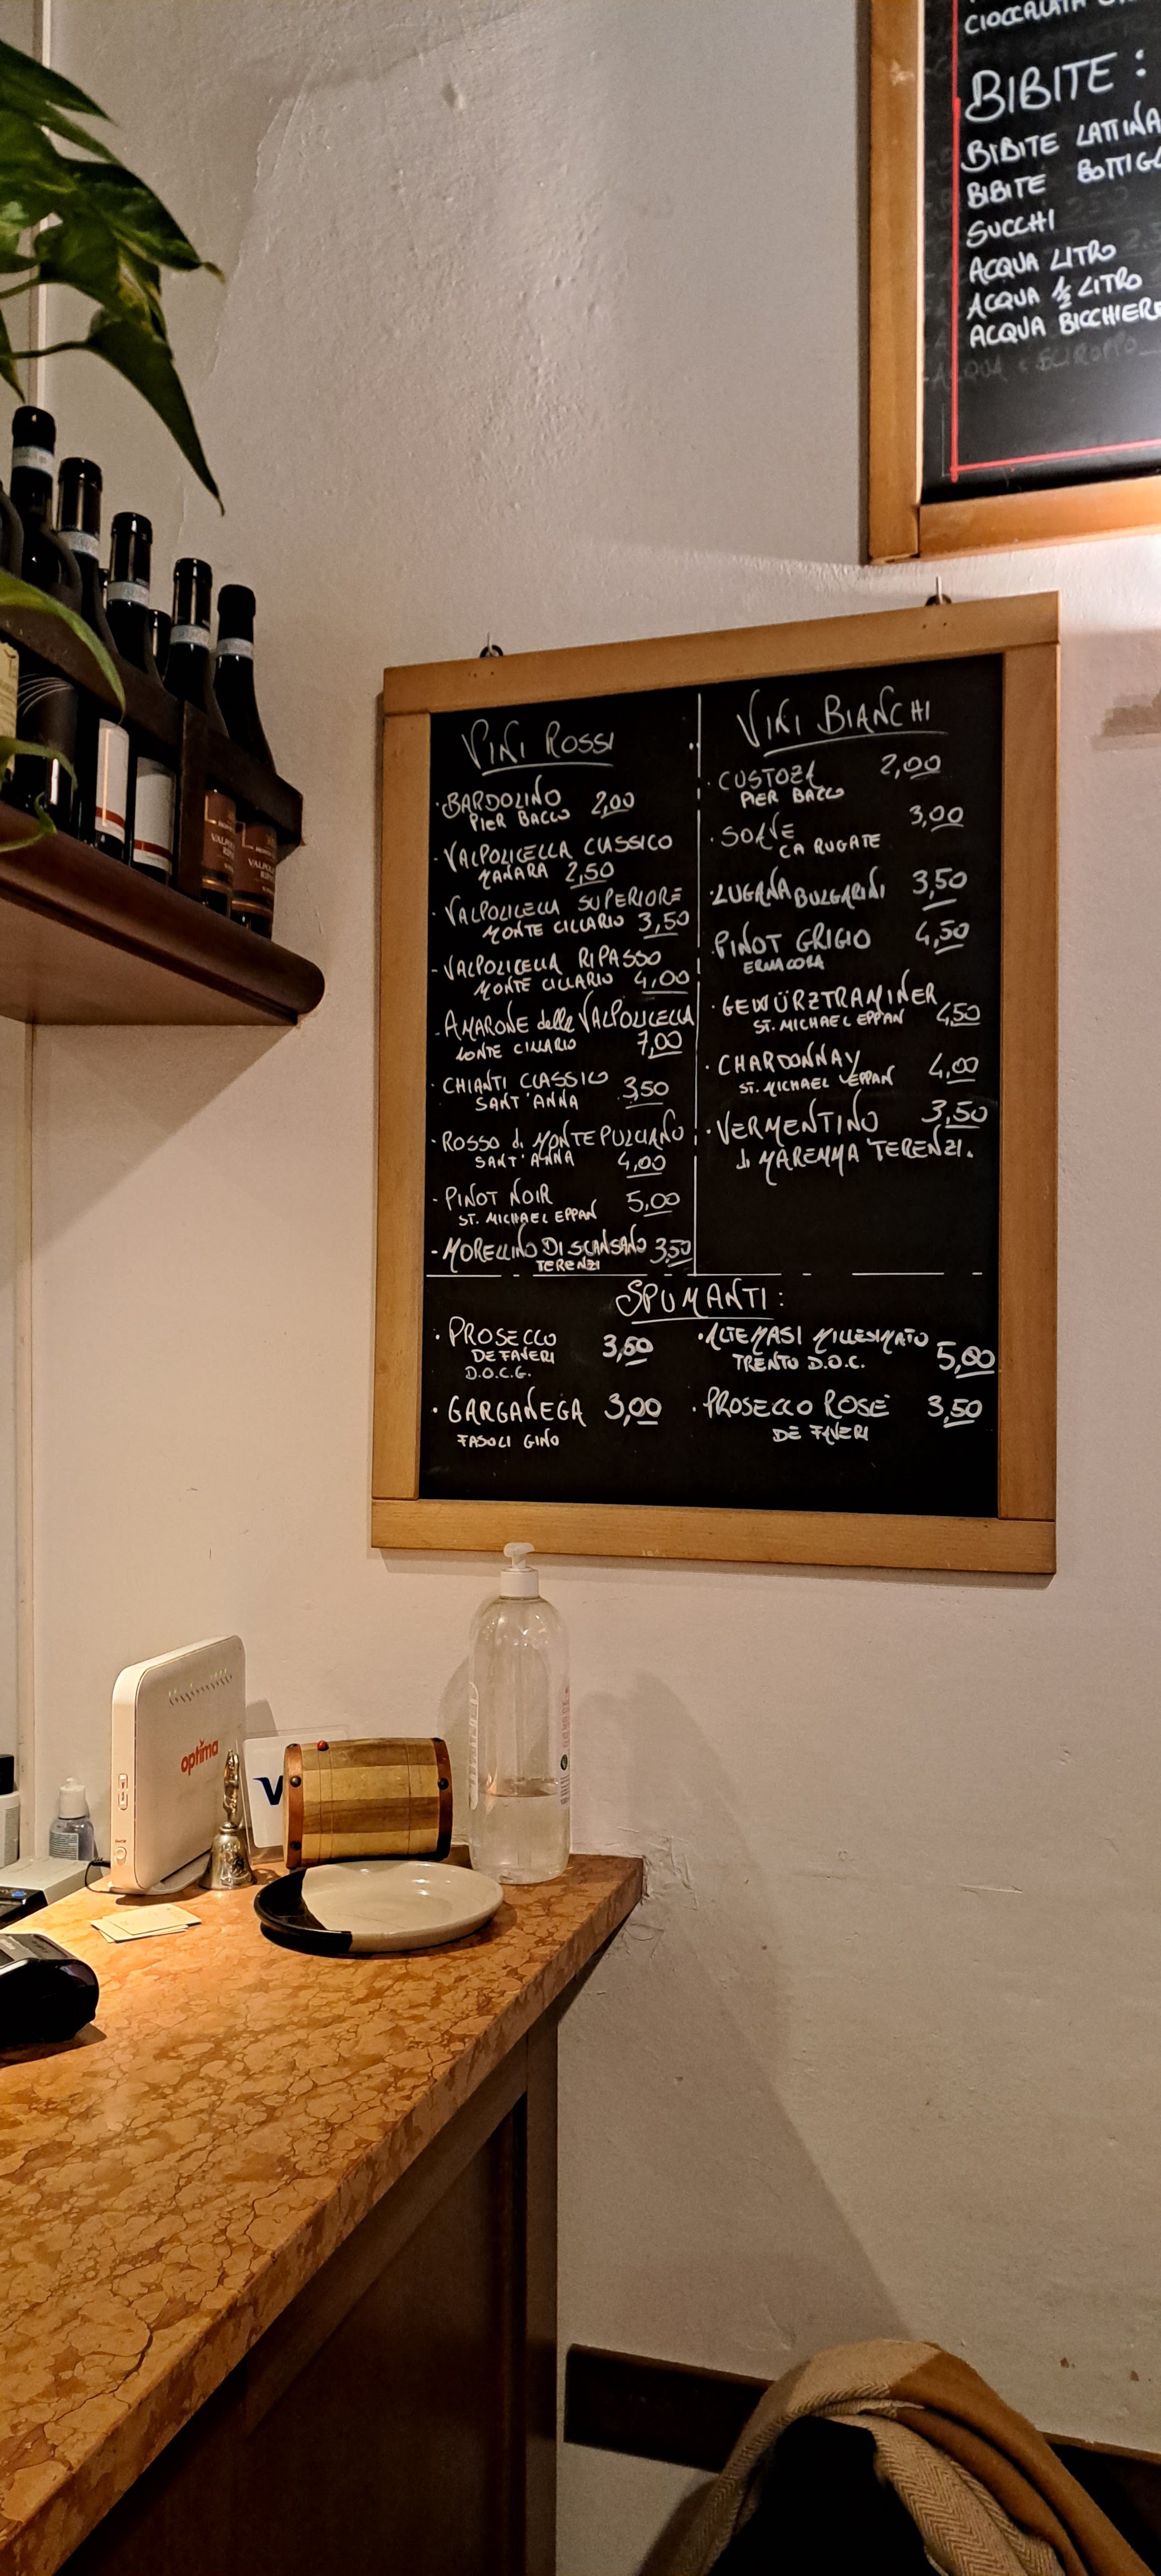 BIBITE :
BIBITE LATTINA
BIBITE
SUCCHI
ACQUA LITRO
ACQUA ½ LITRO
ACQUA BICCHIERE
ACQUA e SCIROPPO
VINI ROSSI
· BARDOLINO 2,00
PIER BACCO
· VALPOLICELLA CLASSICO
MANARA 2,50
· VALPOLICELLA SUPERIORE
MONTE CILLARIO 3,50
- VALPOLICELLA RIPASSO
MONTE CILLARIO 4,00
· AMARONE della VALPOLICELLA
MONTE CILLARIO 7,00
· CHIANTI CLASSICO 3,50
SANT'ANNA
· ROSSO di MONTEPULCIANO
SANT'ANNA 4,00
- PINOT NOIR 5,00
ST. MICHAEL EPPAN
- MORELLINO DI SCANSANO 3,50
TERENZI
VINI BIANCHI
· CUSTOZA 2,00
PIER BACCO
· SOAVE 3,00
CA RUGATE
· LUGANA BULGARINI 3,50
PINOT GRIGIO 4,50
ERMACORA
· GEWÜRZTRAMINER
ST. MICHAEL EPPAN 4,50
· CHARDONNAY 4,00
ST. MICHAEL EPPAN
· VERMENTINO 3,50
di MAREMMA TERENZI.
SPUMANTI :
· PROSECCO 3,50
DE FAVERI
D.O.C.G.
· GARGANEGA 3,00
FASOLI GINO
· ALTEMASI MILLESIMATO
TRENTO D.O.C. 5,00
· PROSECCO ROSÈ 3,50
DE FAVERI
optima
V